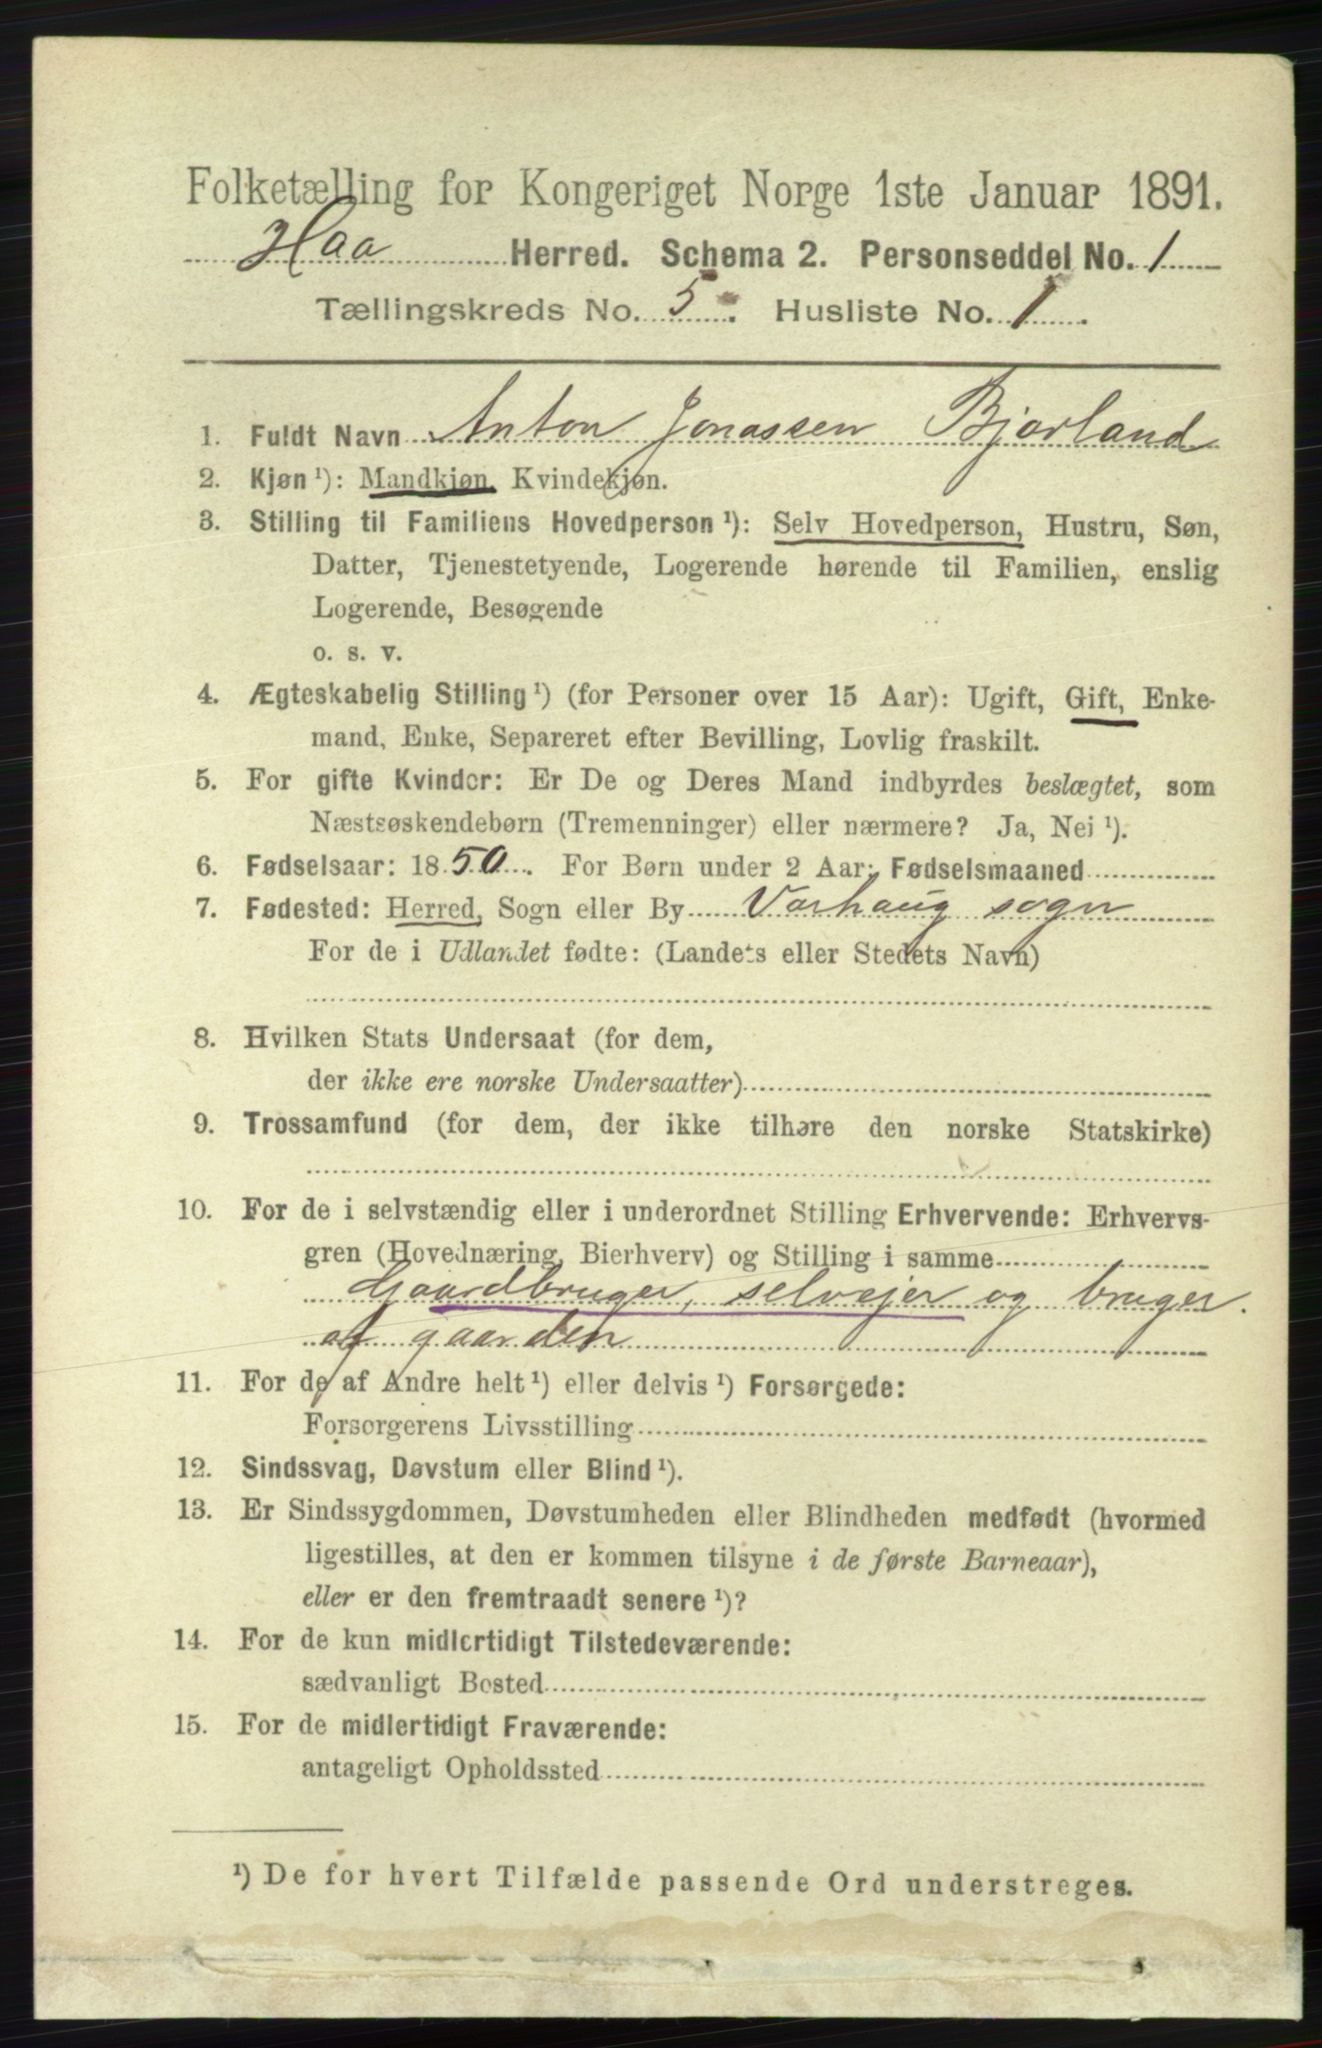 Folketælling for Kongeriget Norge 1ste Januar 1891.
Haa Herred. Schema 2. Personseddel No. 1
Tællingskreds No. 5. Husliste No. 1.
1. Fuldt Navn Anton Jonassen Bjorland
2. Kjøn ¹): Mandkjøn, Kvindekjøn.
3. Stilling til Familiens Hovedperson ¹): Selv Hovedperson, Hustru, Søn,
Datter, Tjenestetyende, Logerende hørende til Familien, enslig
Logerende, Besøgende
o. s. v.
4. Ægteskabelig Stilling ¹) (for Personer over 15 Aar): Ugift, Gift, Enke-
mand, Enke, Separeret efter Bevilling, Lovlig fraskilt.
5. For gifte Kvinder: Er De og Deres Mand indbyrdes beslægtet, som
Næstsøskendebørn (Tremenninger) eller nærmere? Ja, Nei ¹).
6. Fødselsaar: 1850. For Børn under 2 Aar: Fødselsmaaned
7. Fødested: Herred, Sogn eller By Varhaug sogn
For de i Udlandet fødte: (Landets eller Stedets Navn)
8. Hvilken Stats Undersaat (for dem,
der ikke ere norske Undersaatter)
9. Trossamfund (for dem, der ikke tilhøre den norske Statskirke)
10. For de i selvstændig eller i underordnet Stilling Erhvervende: Erhvervs-
gren (Hovednæring, Bierhverv) og Stilling i samme
Gaardbruger, selvejer og bruger
af gaarden
11. For de af Andre helt ¹) eller delvis ¹) Forsørgede:
Forsørgerens Livsstilling
12. Sindssvag, Døvstum eller Blind ¹).
13. Er Sindssygdommen, Døvstumheden eller Blindheden medfødt (hvormed
ligestilles, at den er kommen tilsyne i de første Barneaar),
eller er den fremtraadt senere ¹)?
14. For de kun midlertidigt Tilstedeværende:
sædvanligt Bosted
15. For de midlertidigt Fraværende:
antageligt Opholdssted
¹) De for hvert Tilfælde passende Ord understreges.